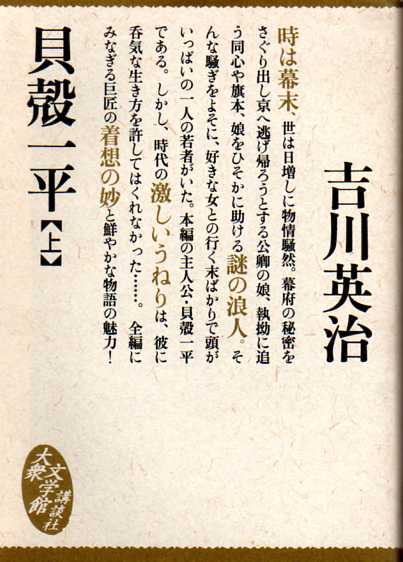 吉川英治
時は幕末、世は日増しに物情騒然。幕府の秘密を
さぐり出し京へ逃げ帰ろうとする公卿の娘、執拗に追
う同心や旗本、娘をひそかに助ける謎の浪人。そ
んな騒ぎをよそに、好きな女との行く末ばかりで頭が
いっぱいの一人の若者がいた。本編の主人公・貝殻一平
である。しかし、時代の激しいうねりは、彼に
呑気な生き方を許してはくれなかった……。全編に
みなぎる巨匠の着想の妙と鮮やかな物語の魅力！
貝殻一平【上】
講談社
大衆文学館